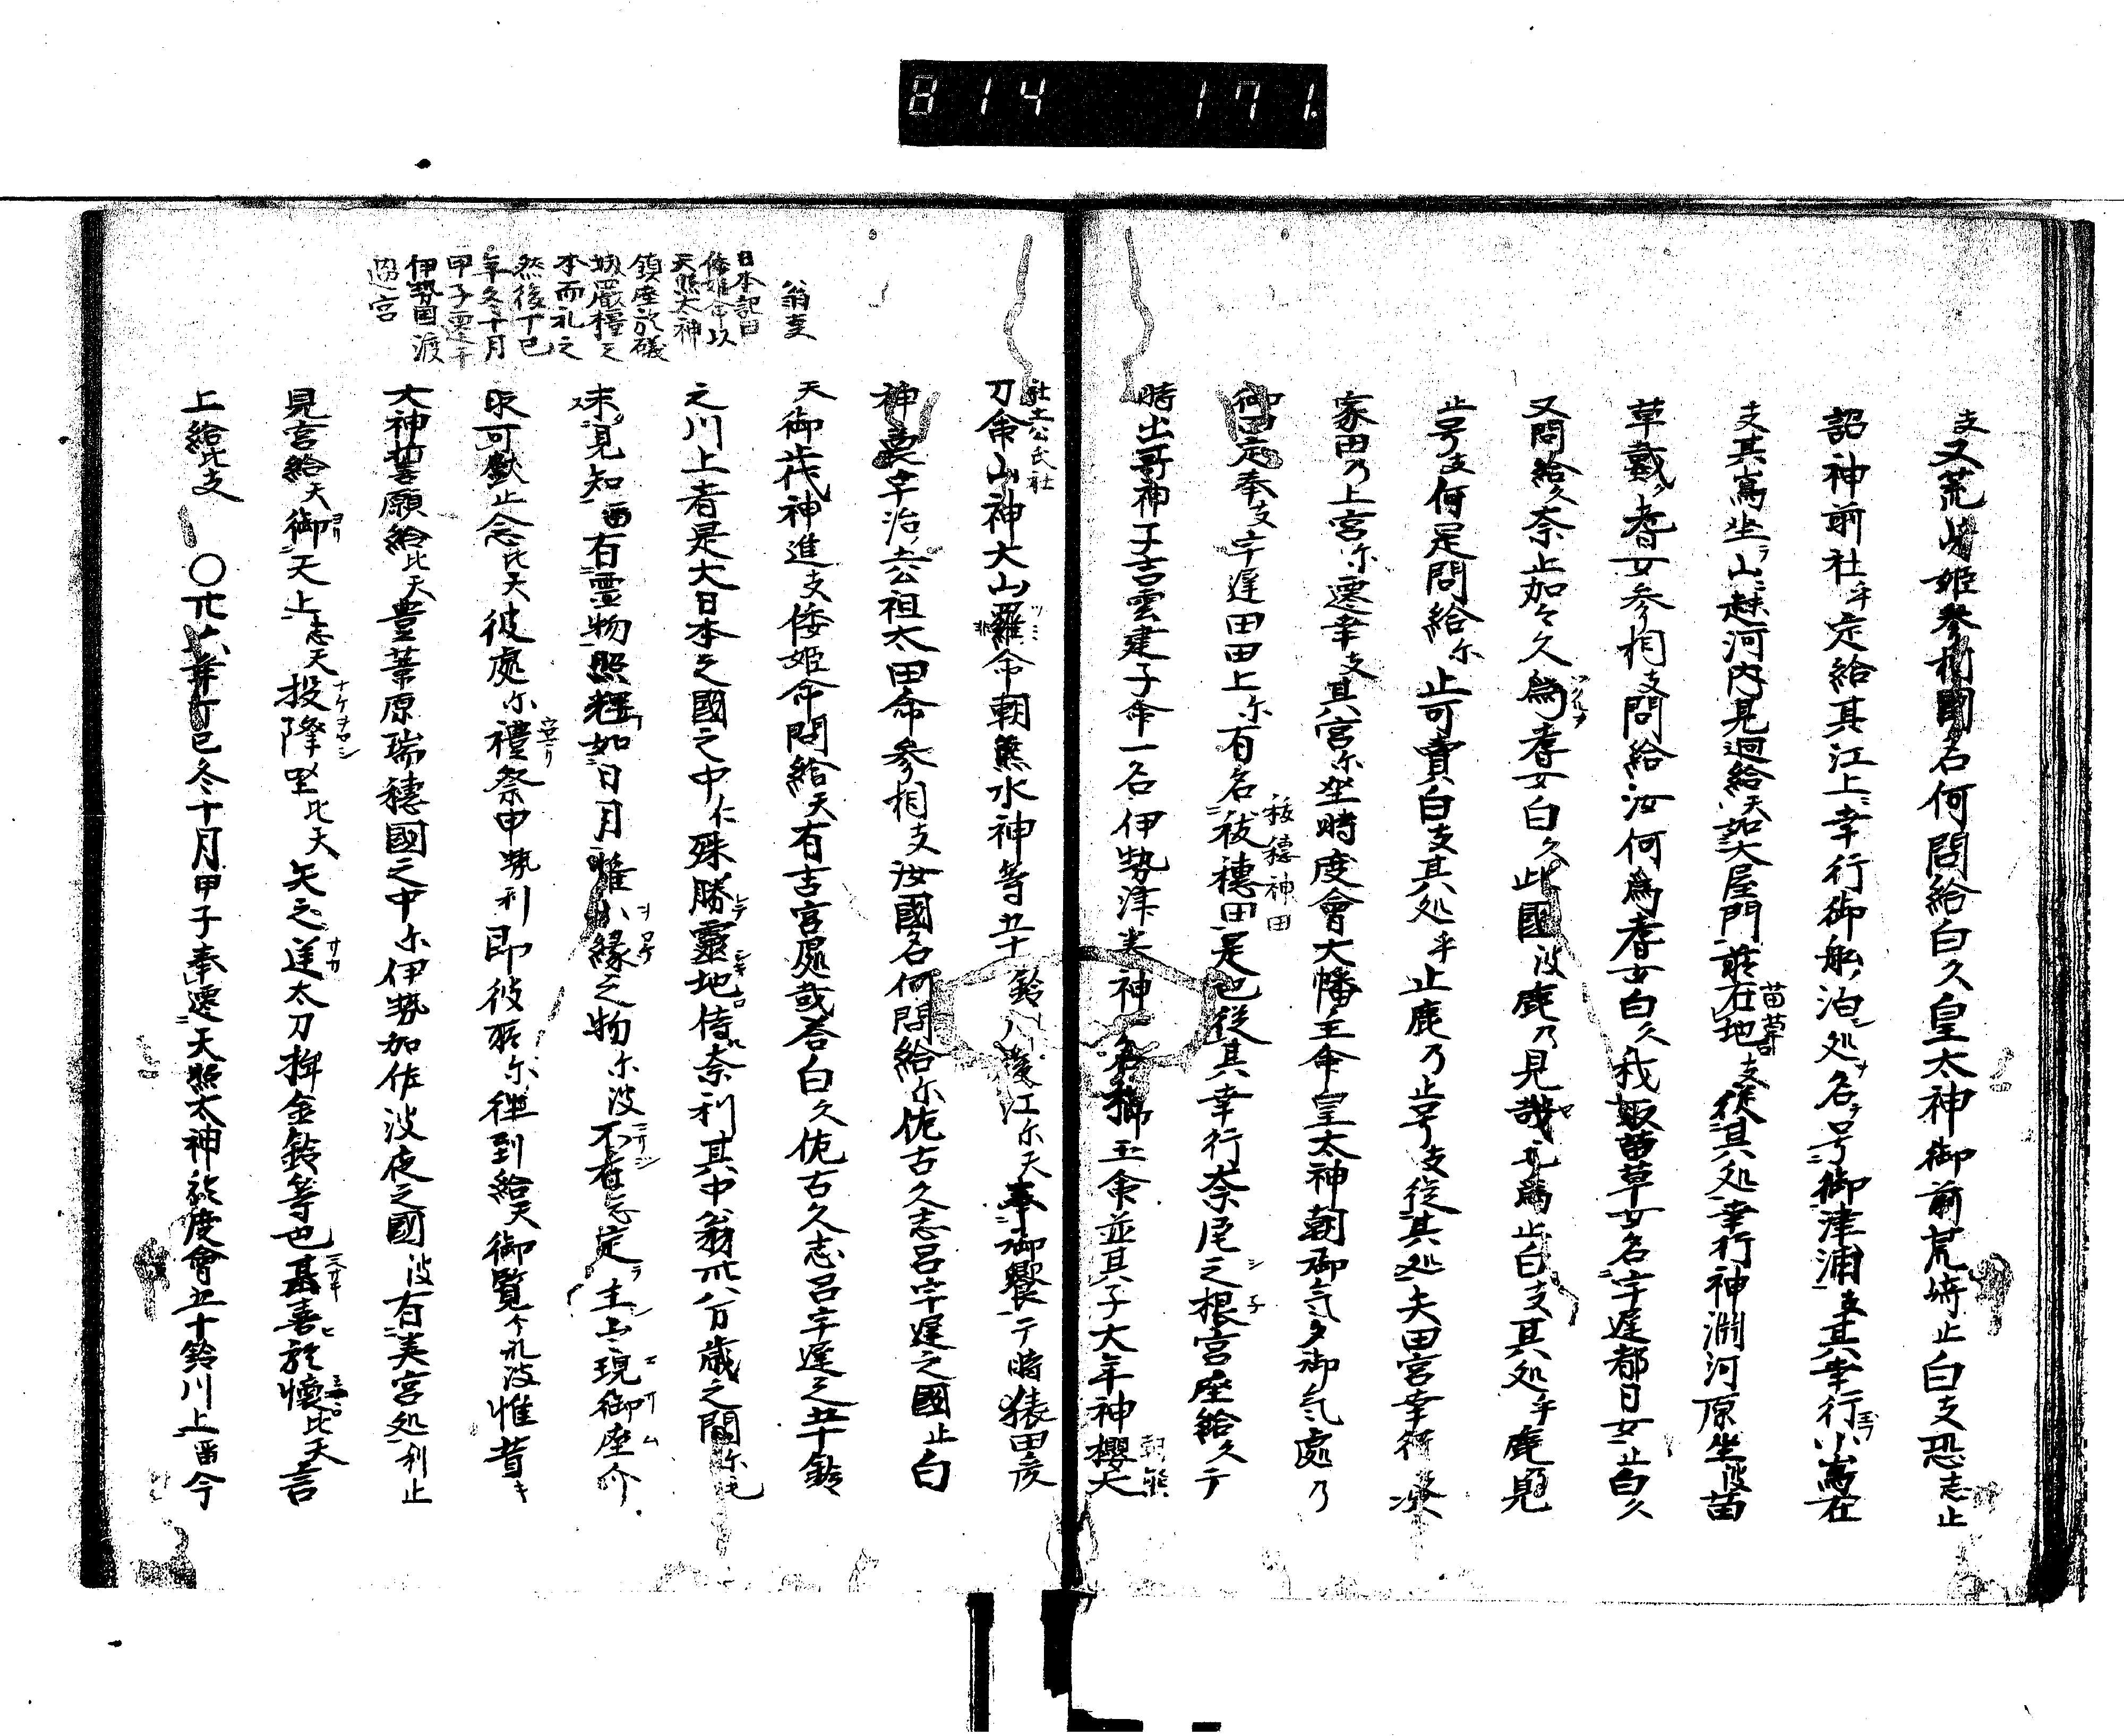 814 171.
支又荒崎姫参相國名何問給白久皇太神御前荒崎止白支恐志止
詔神前社乎定給其江上幸行御舩泊処名号御津浦支其幸行小嶌在
支其嶌坐山末河内見廻給天如大屋門前在地支従其処幸行神淵河原坐波苗
苗草
草戴耆女参相支問給汝何為耆女白久我取苗草女名宇遅都日女止白久
又問給久奈止加々久為耆女白久此國波鹿乃見哉毛為止白支其処乎鹿見
止号支何是問給尓止可賣白支其処乎止鹿乃止号支従其処矢田宮幸行次
家田乃上宮尓遷幸支其宮尓坐時度會大幡主命皇太神朝御気夕御気處乃
御田定奉支宇遅田田上尓有名祓穂田是也従其幸行奈尾之根宮座給久于
祓穂神田
時出哥神子吉雲建子命一名伊勢津彦神一名櫛玉命並其子大年神櫻大
朝熊
刀命山神大山羅命朝熊水神等五十鈴川後江尓天奉御饗于時猿田彦
社土公氏社
神裔宇治土公祖太田命参相支汝國名何問給尓佐古久志呂宇遅之國止白
天御代神進支倭姫命問給天有吉宮處哉答白久佐古久志呂宇遅之五十鈴
之川上者是大日本之國之中仁殊勝霊地侍奈利其中翁卅八万歳之間尓毛
未見知留有霊物照輝如日月惟小縁之物尓波不有志定主出現御座介
止可献止念比天彼處尓禮祭申勢利即彼所尓往到給天御覧介礼波惟昔
大神誓願給比天豊葦原瑞穂國之中尓伊勢加佐波夜之國波有美宮処利止
見定給天御天上志天投降坐比天矢之逆太刀桙金鈴等也甚喜於懐比天言
上給比支 〇廿六年丁巳冬十月甲子奉遷天照太神於度會五十鈴川上留今
翁重
日本記曰
倭姫命以
天照大神
鎮座於礒
城嚴橿之
本而礼之
然後丁巳
年冬十月
甲子遷于
伊勢國渡
遇宮